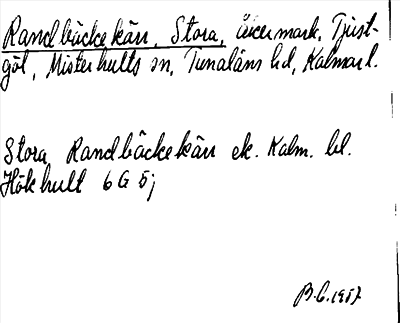 Randbäckekärr, Stora, åkermark, Tjust-
göl, Misterhults sn, Tunaläns hd, Kalmar l.
Stora Randbäckekärr ek. Kalm. bl.
Hökhult 6 G 5j
B.C. 1957